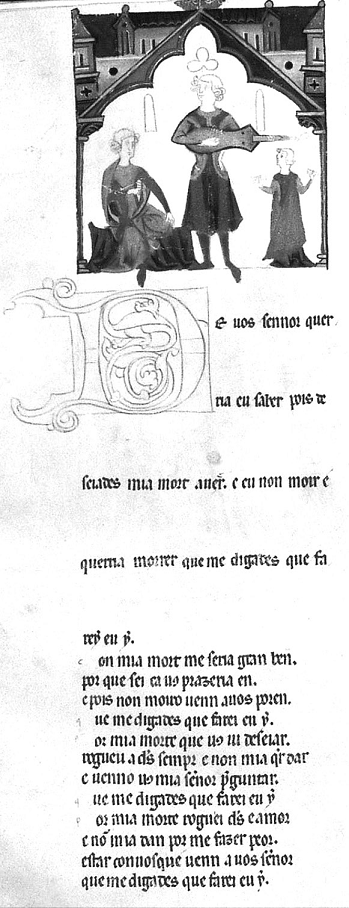 D e uos sennor quer
ria eu saber pois de
seiades mia mort auer. e eu non moir e
querria morrer que me digades que fa
rey eu y.
on mia mort me seria gran ben.
por que sei ca uꝯ prazeria en.
e pois non moiro uenn auos poren.
ue me digades que farei eu y.
or mia morte que uꝯ ui deseiar.
rogueu a ds̄ sempr e non mia qr dar
e uenno uꝯ mia sēnor pguntar.
ue me digades que farei eu y
or mia morte roguei ds̄ e amor
e nō mia dan por me fazer peor.
estar conuosque uenn a uos sēnor
que me digades que farei eu y.